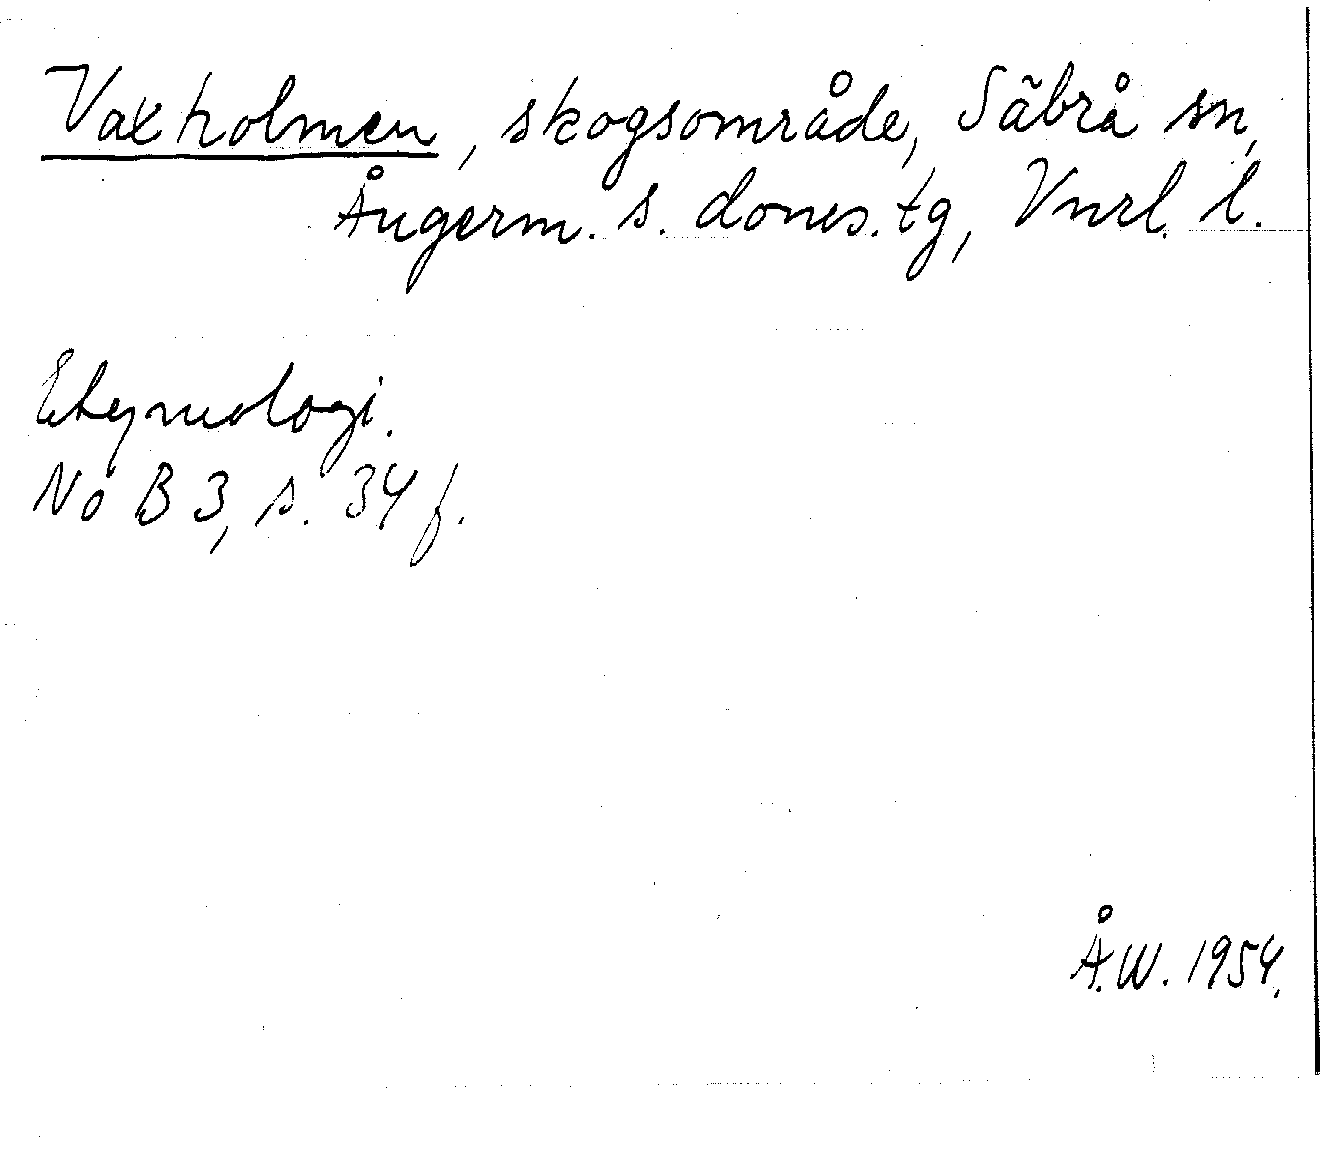 Vaxholmen, skogsområde, Säbrå sn,
Ångerm. s. doms.tg, Vnrl. l.
Etymologi.
NoB 3, s. 34 f.
Å.W. 1954.